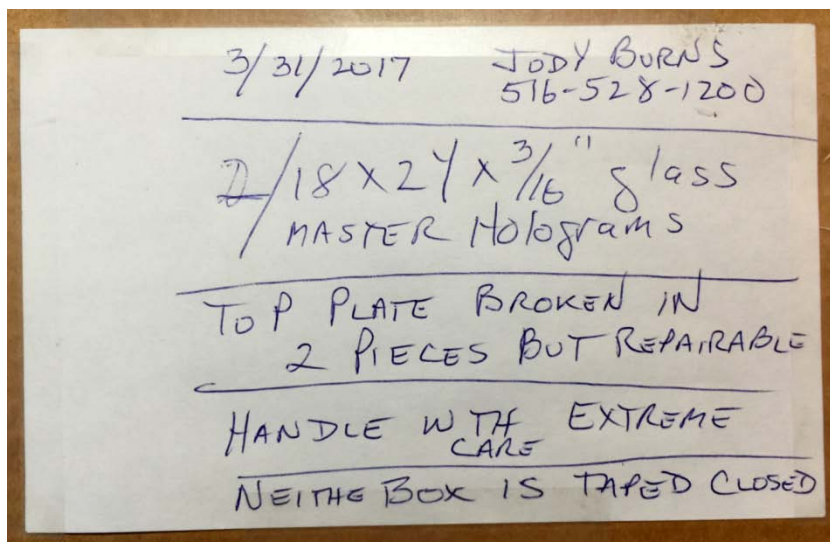 3/31/2017 JODY BURNS
516-528-1200
2/18 X 24 X 3/16" glass
MASTER Holograms
TOP PLATE BROKEN IN
2 PIECES BUT REPAIRABLE
HANDLE WITH EXTREME
CARE
NEITHE BOX IS TAPED CLOSED